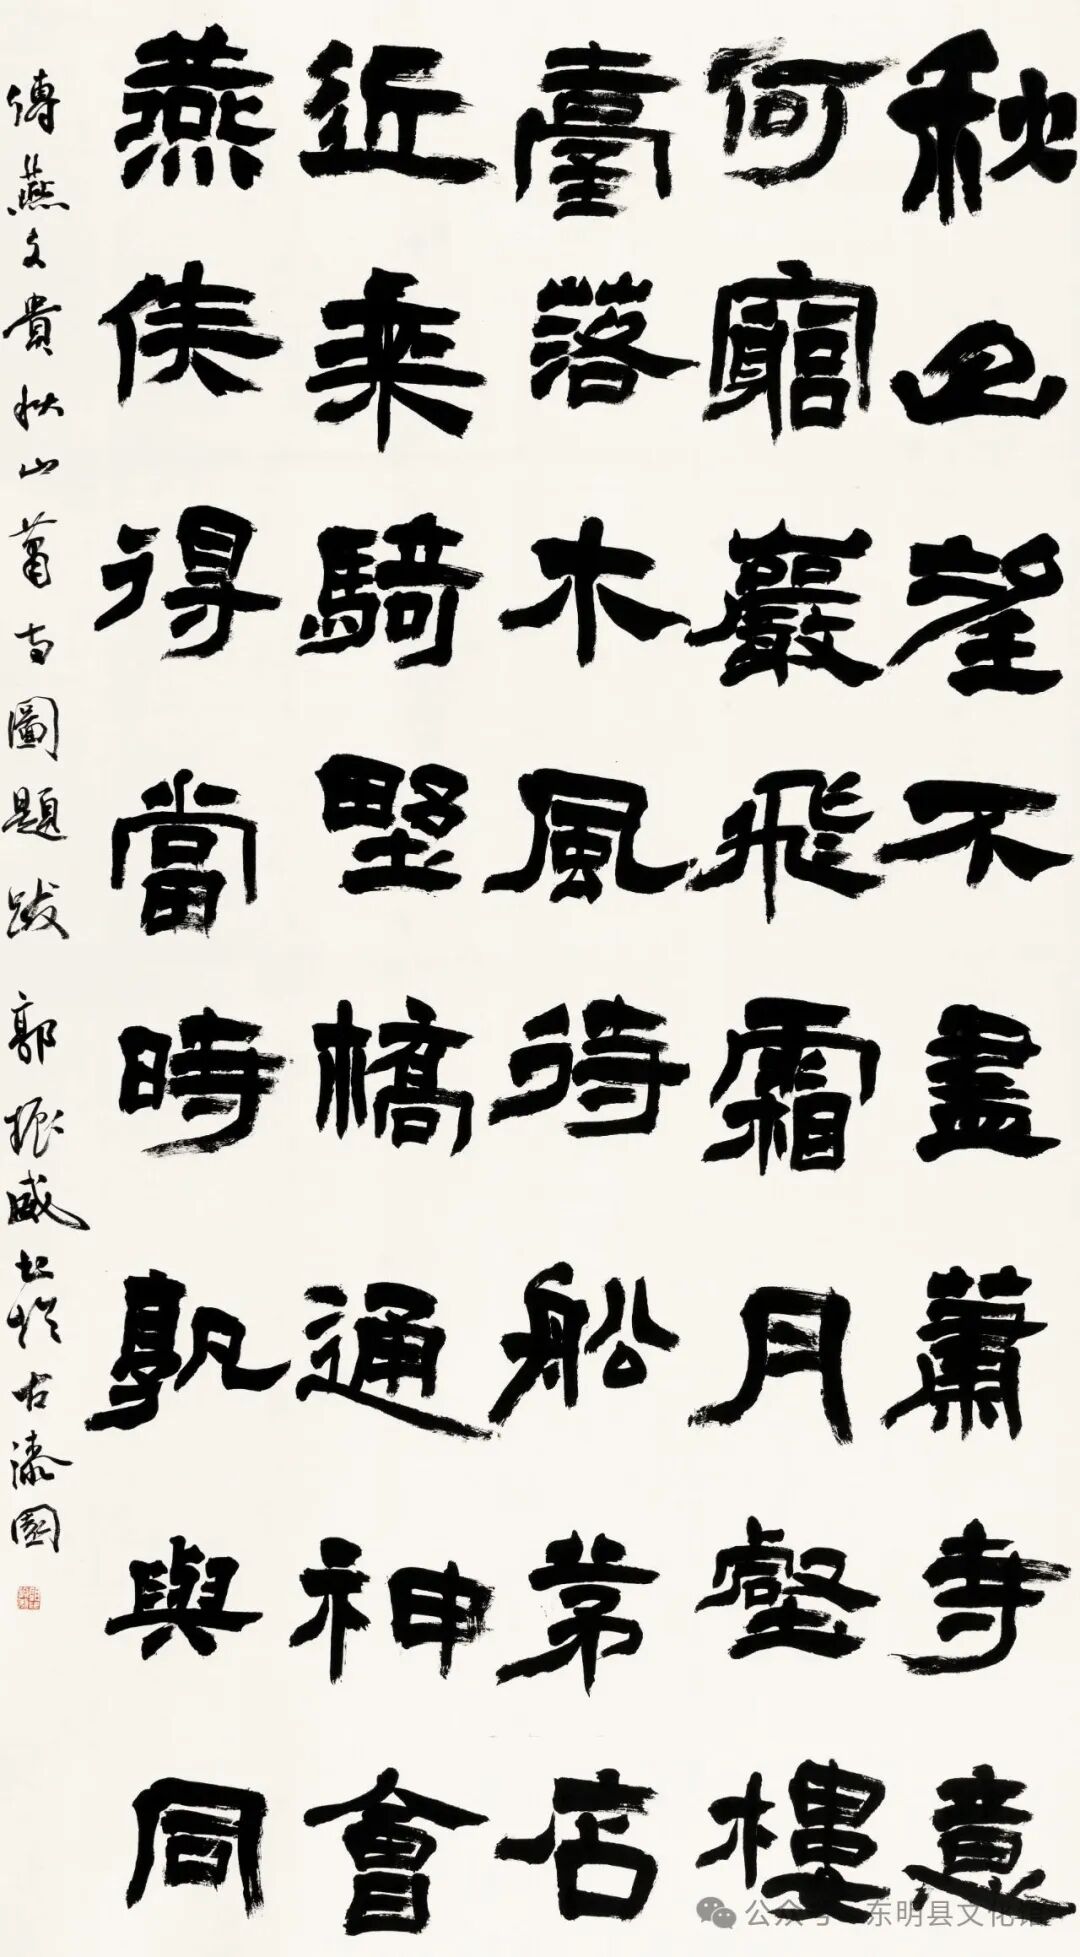 秋山望不盡蕭寺意
何窮巖飛霜月壑樓
臺落木風待船茅店
近乘騎野橋通神會
燕侯得當時孰與同
傳燕文貴秋山蕭寺圖題跋 郭振威書於古漆園
公众号·东明县文化馆